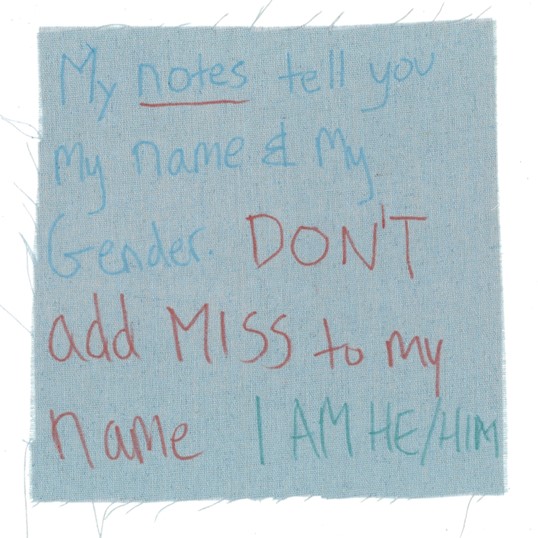 My notes tell you
My name & My
Gender. DON'T
add MISS to my
name I AM HE/HIM